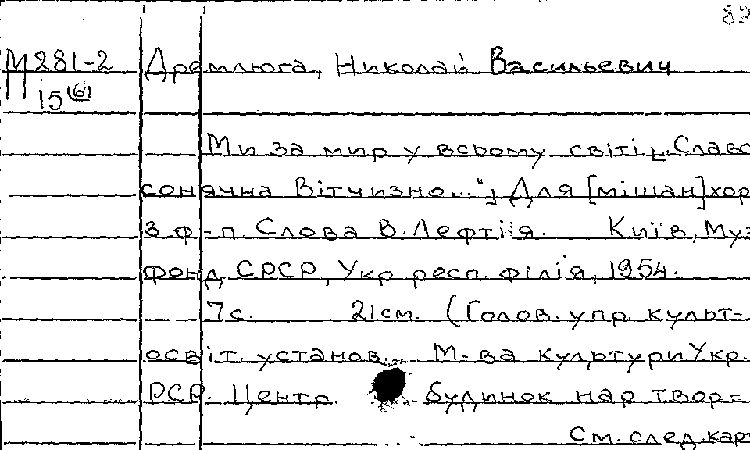 82
М281-2 Дремлюга, Николай Васильевич
15(6)
Ми за мир у всьому світі „Славс
сонячна Вітчизно..."; Для [мішан] хор
з ф-п. Слова В. Лефтія. Київ, Муз
фонд СРСР, Укр респ. філія, 1954.
7с. 21см. (Голов. упр культ-
освіт. установ... М-ва культури Укр.
РСР. Центр. будинок нар твор-
См. след. кар